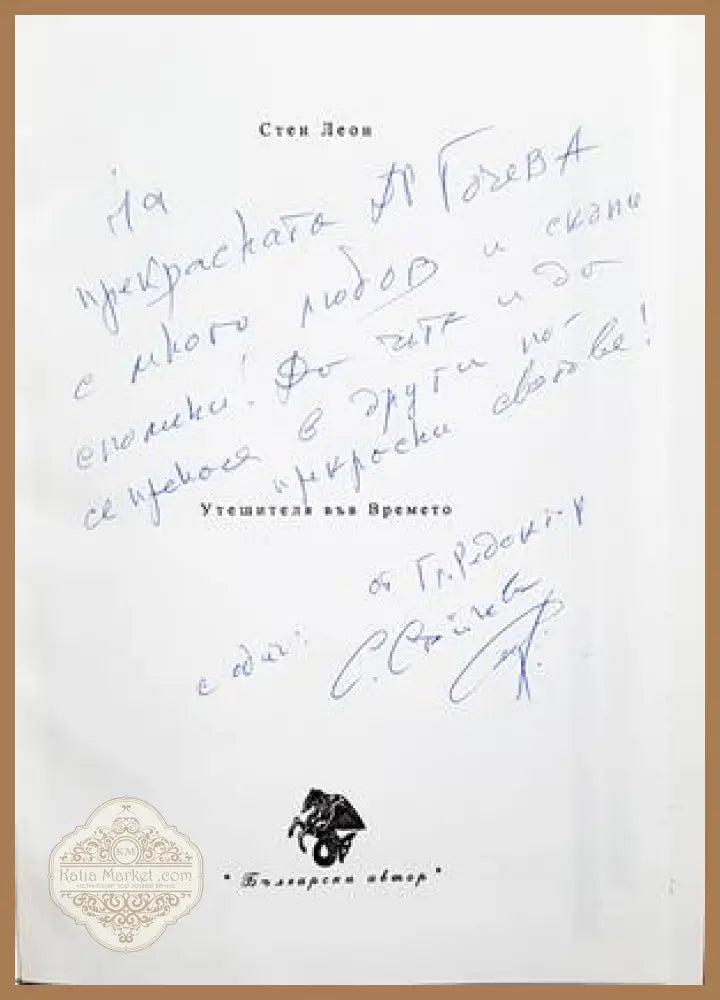 Стен Леон
На
прекрасната Др Гочева
с много любов и скъпи
спомени! Да чете и да
се пренася в други по-
прекрасни светове!
Утешителя във Времето
от Гл. Редактор
с обич: С. Стойчев
"Български автор"
KM
Katia Market .com